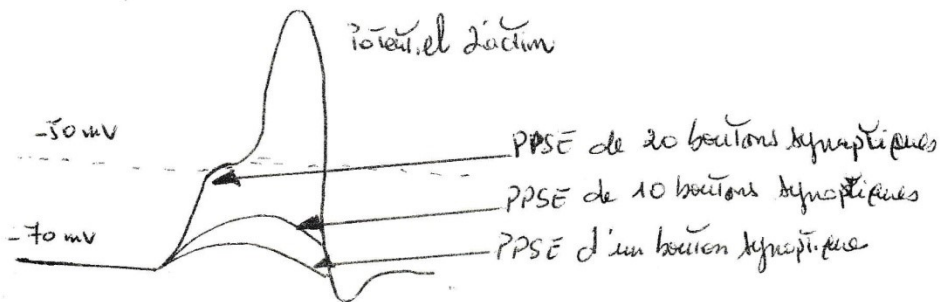 Potentiel d'action
-50 mV
PPSE de 20 boutons synaptiques
PPSE de 10 boutons synaptiques
-70 mV
PPSE d'un bouton synaptique